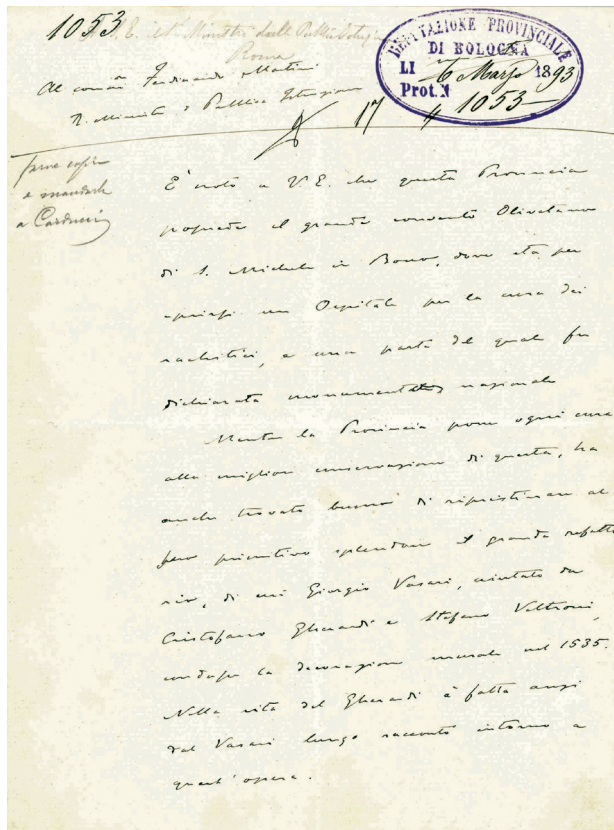 1053
S. E. il Ministro della Pubblica Istruzione
Roma
Al comm Ferdinando Martini
R. Ministro d Pubblica Istruzione
DEPUTAZIONE PROVINCIALE
DI BOLOGNA
LI 6 Marzo 1893
Prot. N 1053
17
farne copia
e mandarla
a Carducci
È noto a V. E. che questa Provincia
possiede il grande convento Olivetano
di S. Michele in Bosco, dove sta per
aprirsi un Ospitale per la cura dei
rachitici, e una parte del quale fu
dichiarata monumento nazionale
Mentre la Provincia pone ogni cura
alla miglior conservazione di questa, ha
anche trovato buono di ripristinare al
suo primitivo splendore il grande refetto
rio, di cui Giorgio Vasari, aiutato da
Cristofano Gherardi e Stefano Veltroni,
condusse la decorazione murale nel 1535.
Nella vita del Gherardi è fatto anzi
dal Vasari lungo racconto intorno a
quest'opera.